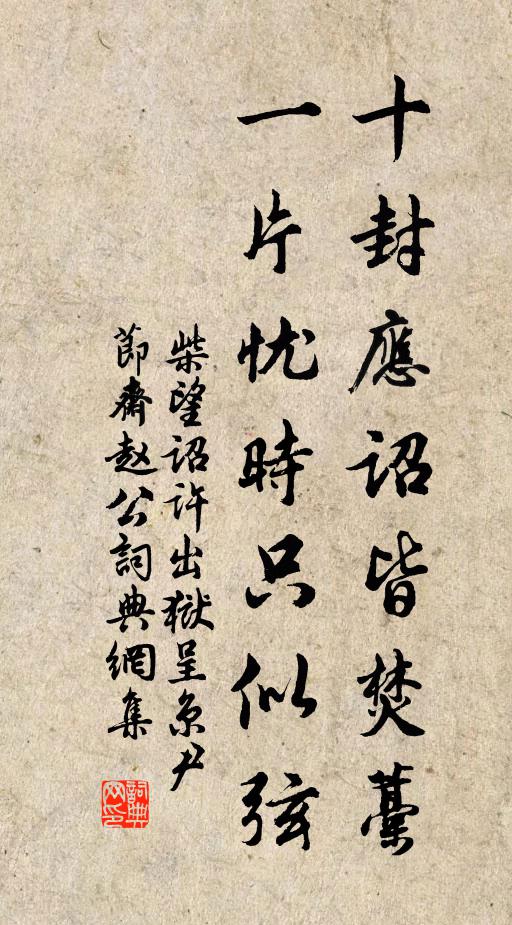 十封應詔皆焚藁
一片忧時只似弦
柴望詔许出獄呈京尹
節齋赵公詞典網集
詞典网印